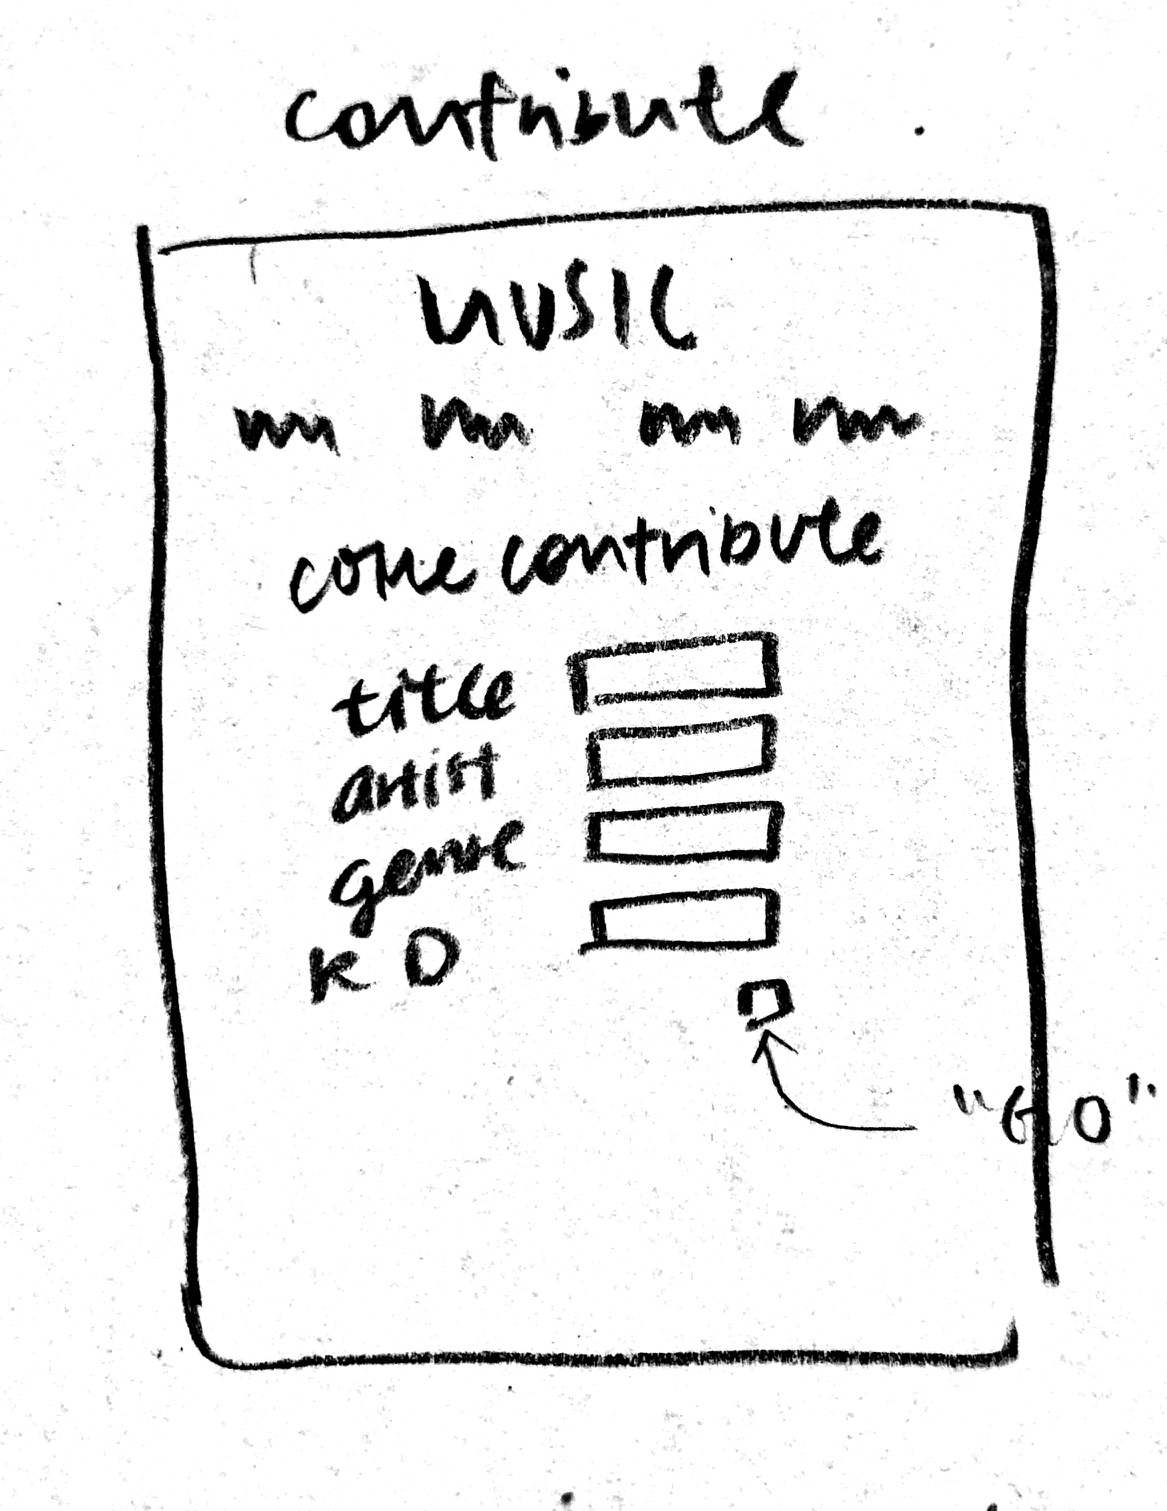 contribute
MUSIC
come contribute
title
artist
genre
K D
"GO"